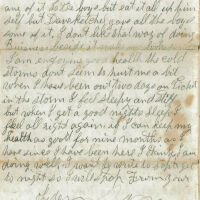 any of it to the boys but eat it all up him
self but Dave Ketchu gave all the boys
some of it, I don't like that way of doing
Business
I am enjoying good health the cold
storms dont seem to hurt me a bit
when I have been out two days on Picket
in the storm I feel sleepy and stiff
but when I get a good nights sleep I
feel all right again. if I can keep my
health as good for nine months as I
have since I have been here I think I am
doing well. I want to write to
to night so I will stop From your